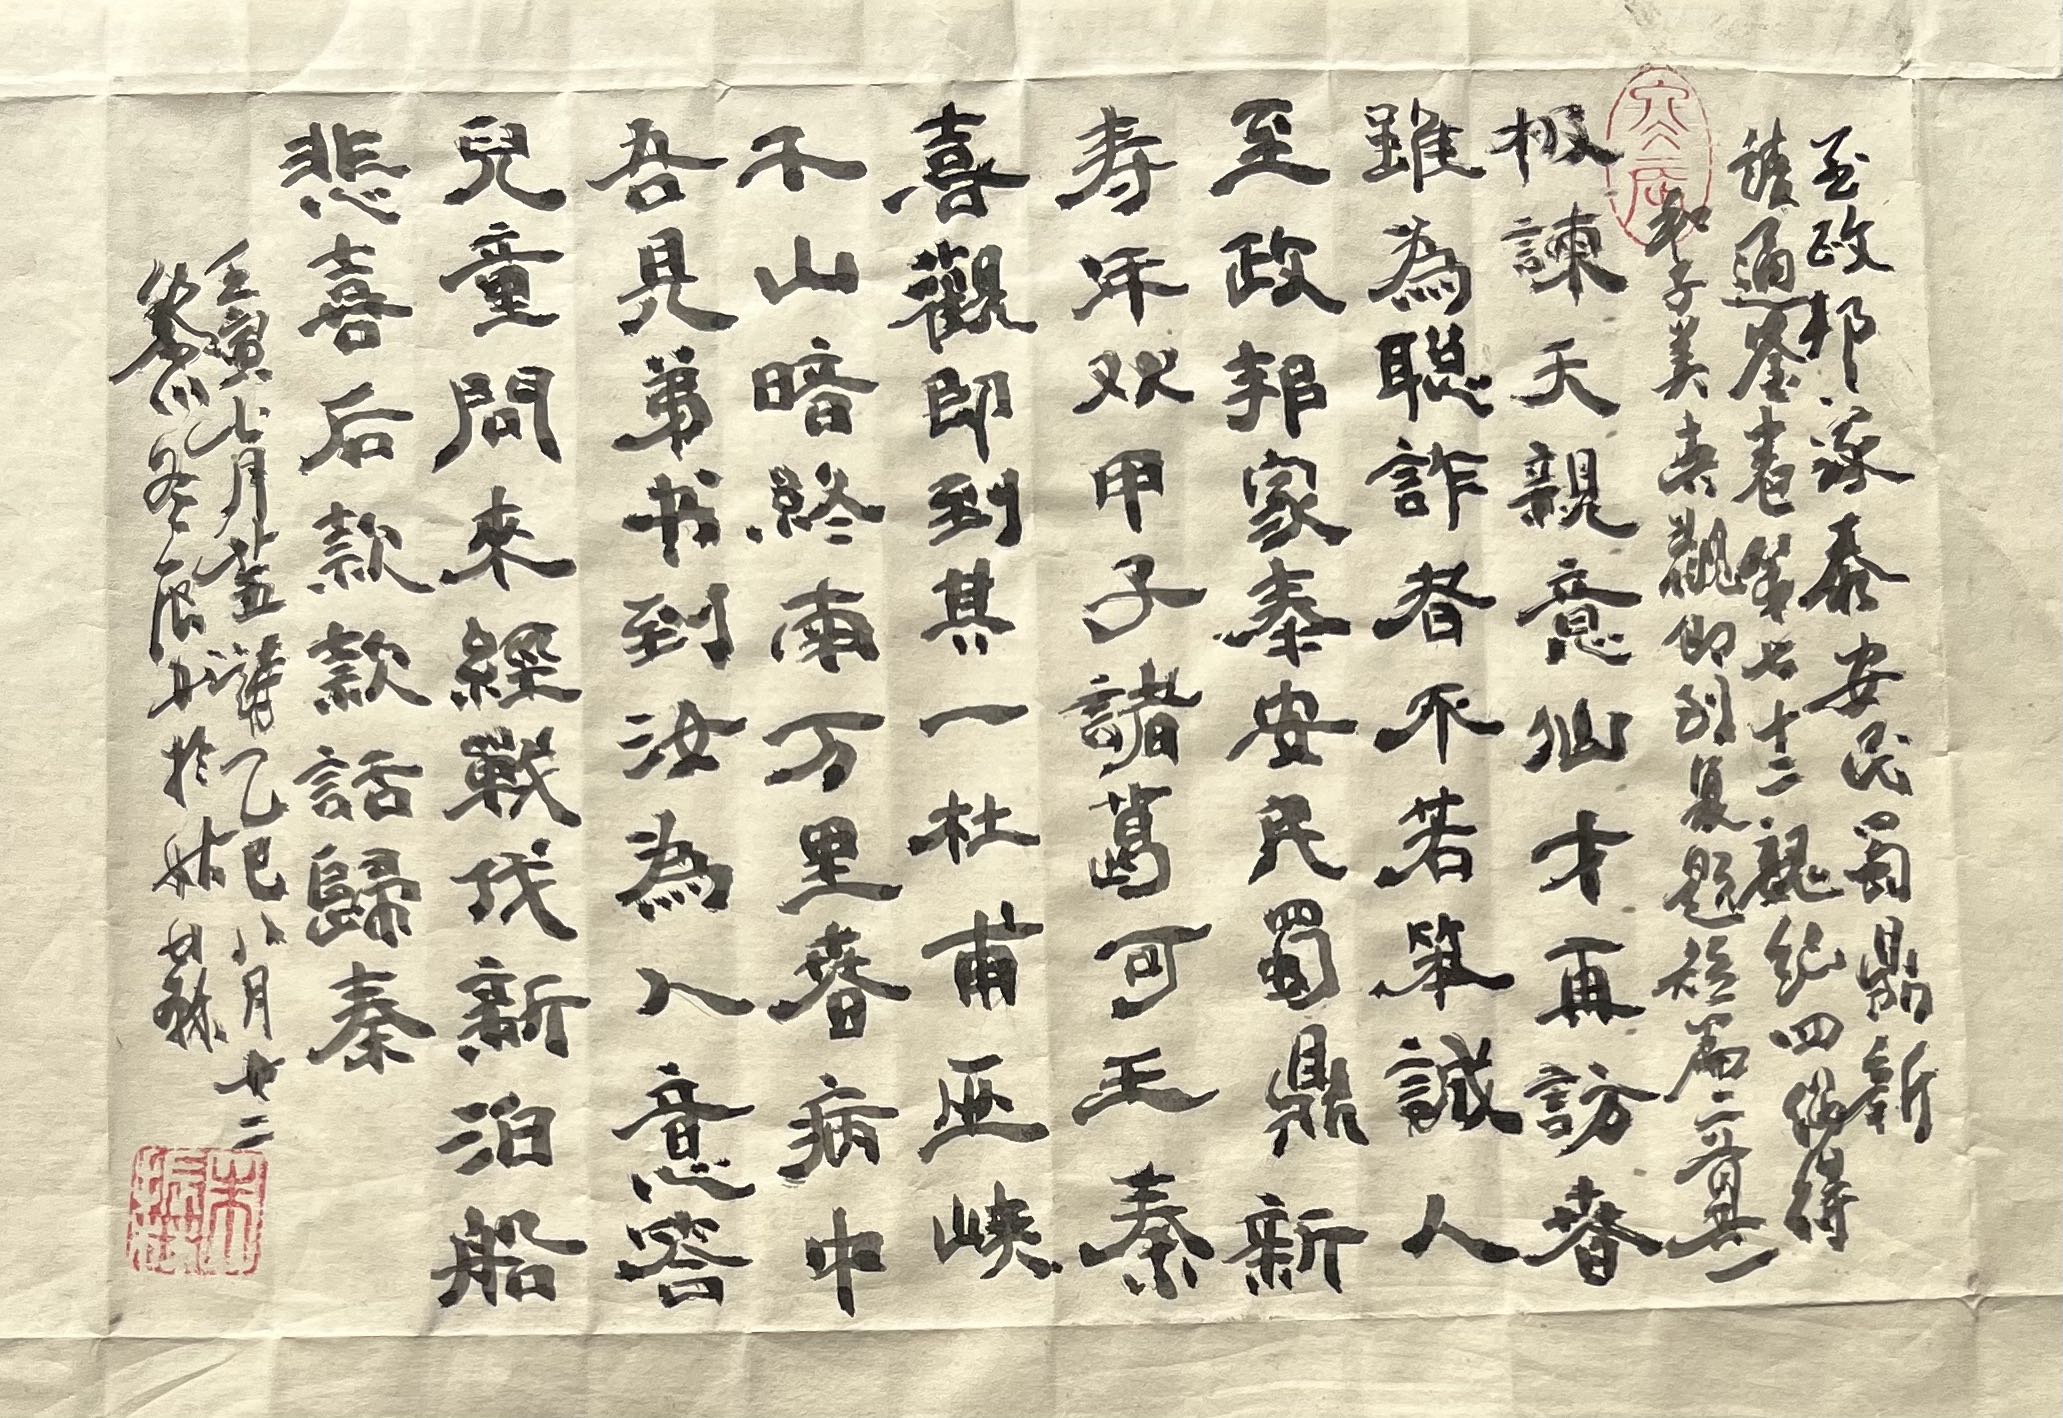 至政邦家泰安民蜀鼎新
读通鉴卷第七十二魏纪四偶得
和子美喜观即到复题短篇二首其一
极諫天親意仙才再訪春
雖為聰詐者不若筞誠人
至政邦家泰安民蜀鼎新
寿年双甲子諸葛可王秦
喜觀即到其一杜甫巫峡
千山暗終南万里春病中
吾見弟书到汝為人意答
兒童問來經戰伐新泊船
悲喜后款款話歸秦
壬寅七月 乙巳八月廿二
於姑苏